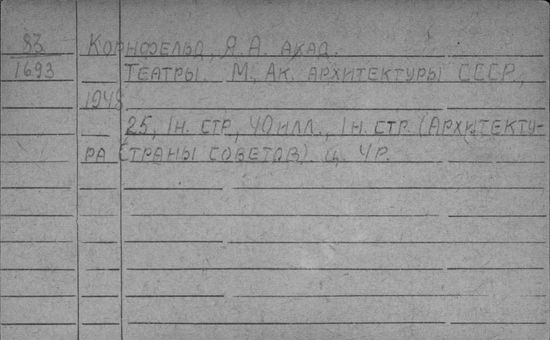 83 Корнфельд, Я.А. акад.
1693 Театры. М., Ак. архитектуры СССР,
1948
25, 1н. стр, 40 илл., 1н. стр. (Архитекту-
ра страны советов). ц. 4р.